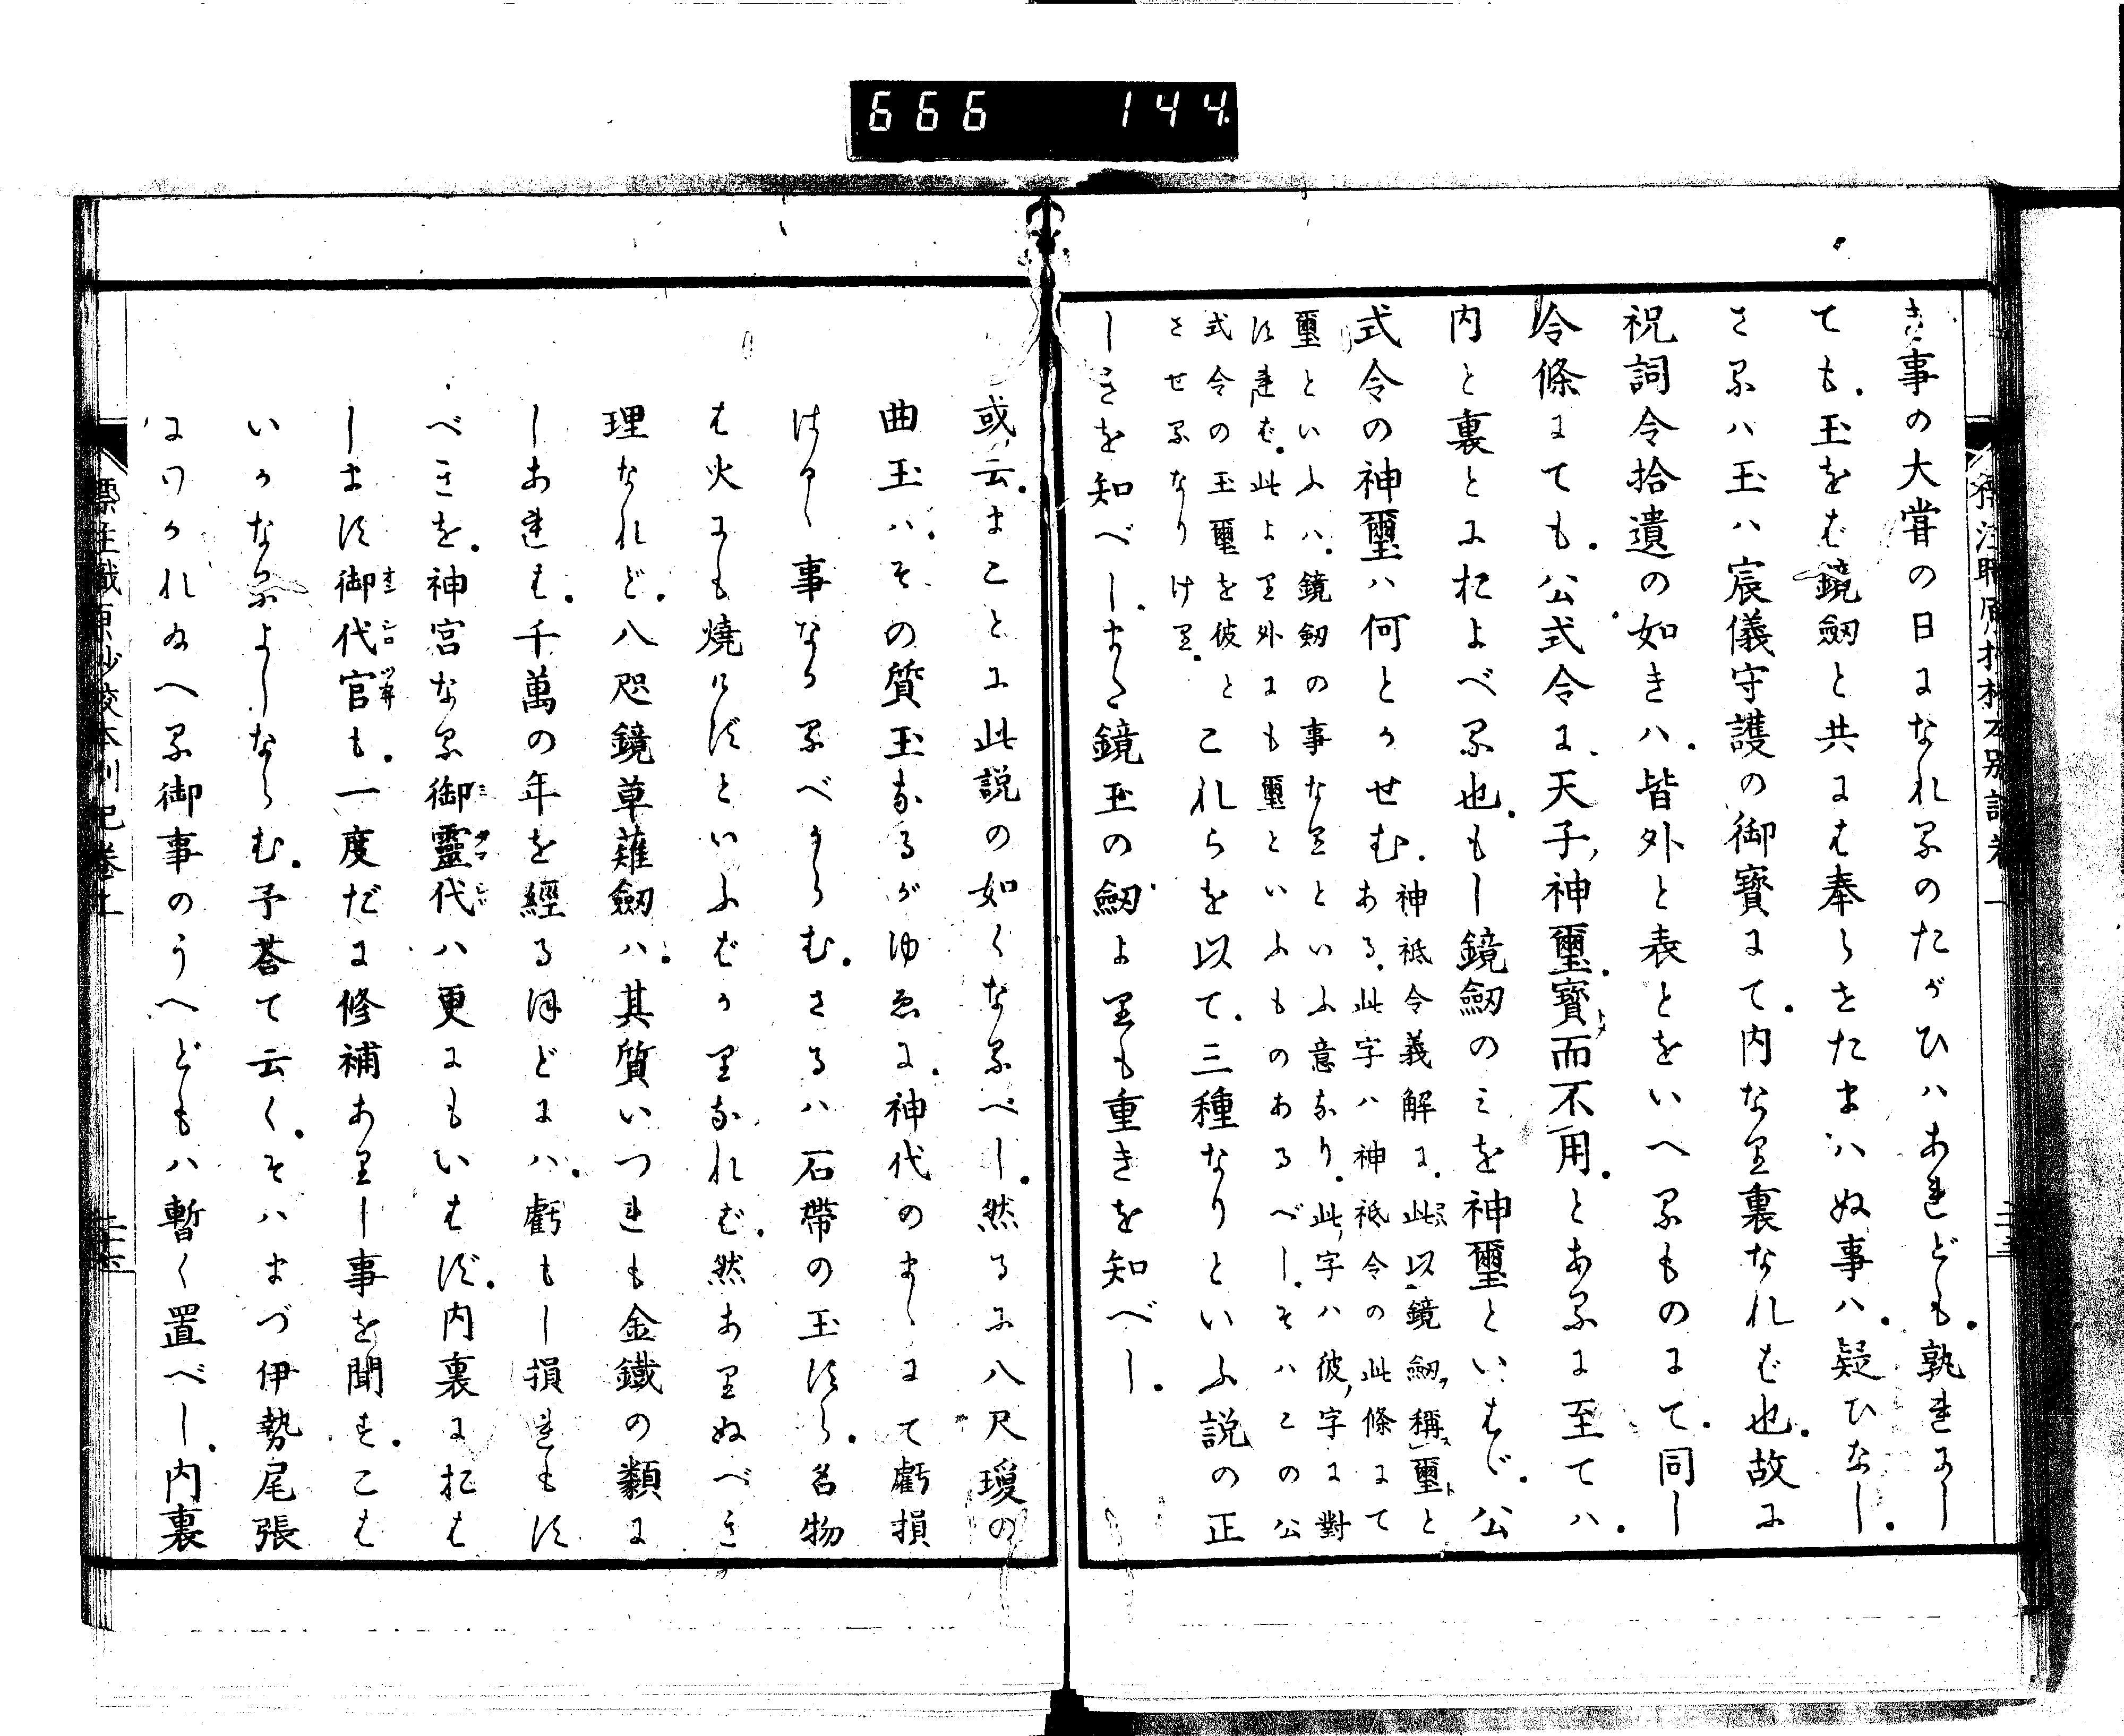 666 144.
き事の大甞の日になれるのたがひハあれども。孰れにし
ても。玉をむ鏡劔と共にむ奉らせたまハぬ事ハ。疑ひなし。
さるハ玉ハ宸儀守護の御寳にて。内なり裏なれむ也。故に
祝詞令拾遺の如きハ。皆外と表とをいへるものにて。同し
令條にても。公式令に、天子神璽。寳而不用。とあるに至てハ。
内と裏とにおよべる也。もし鏡劔のミを神璽といはゞ。公
式令の神璽ハ何とかせむ。神祇令義解に。此以鏡劔稱璽と
ある。此字ハ神祇令の此條にて
璽といふハ。鏡劔の事なりといふ意なり。此字ハ彼字に對
すれむ。此より外にも璽といふものあるべし。そハこの公
式令の玉璽を彼と
させるなりけり。
これらを以て。三種なりといふ説の正
しきを知べし。また鏡玉の劔よりも重きを知べし。
或云。まことに此説の如くなるべし。然るに八尺瓊の
曲玉ハ。その質玉なるがゆゑに。神代のまゝにて虧損
はゝ事なかるべからむ。さるハ石帶の玉すら。名物
は火にも燒けずといふばかりなれば。然ありぬべき
理なれど。八咫鏡草薙劔ハ。其質いつれも金鐵の類に
しあれは。千萬の年を經るほどにハ。虧もし損れもす
べきを。神宮なる御靈代ハ更にもいはず。内裏におは
します御代官も。一度だに修補ありし事を聞ず。こは
いかなるよしならむ。予荅て云く。そハまづ伊勢尾張
にわかれゐへる御事のうへどもハ暫く置べし。内裏